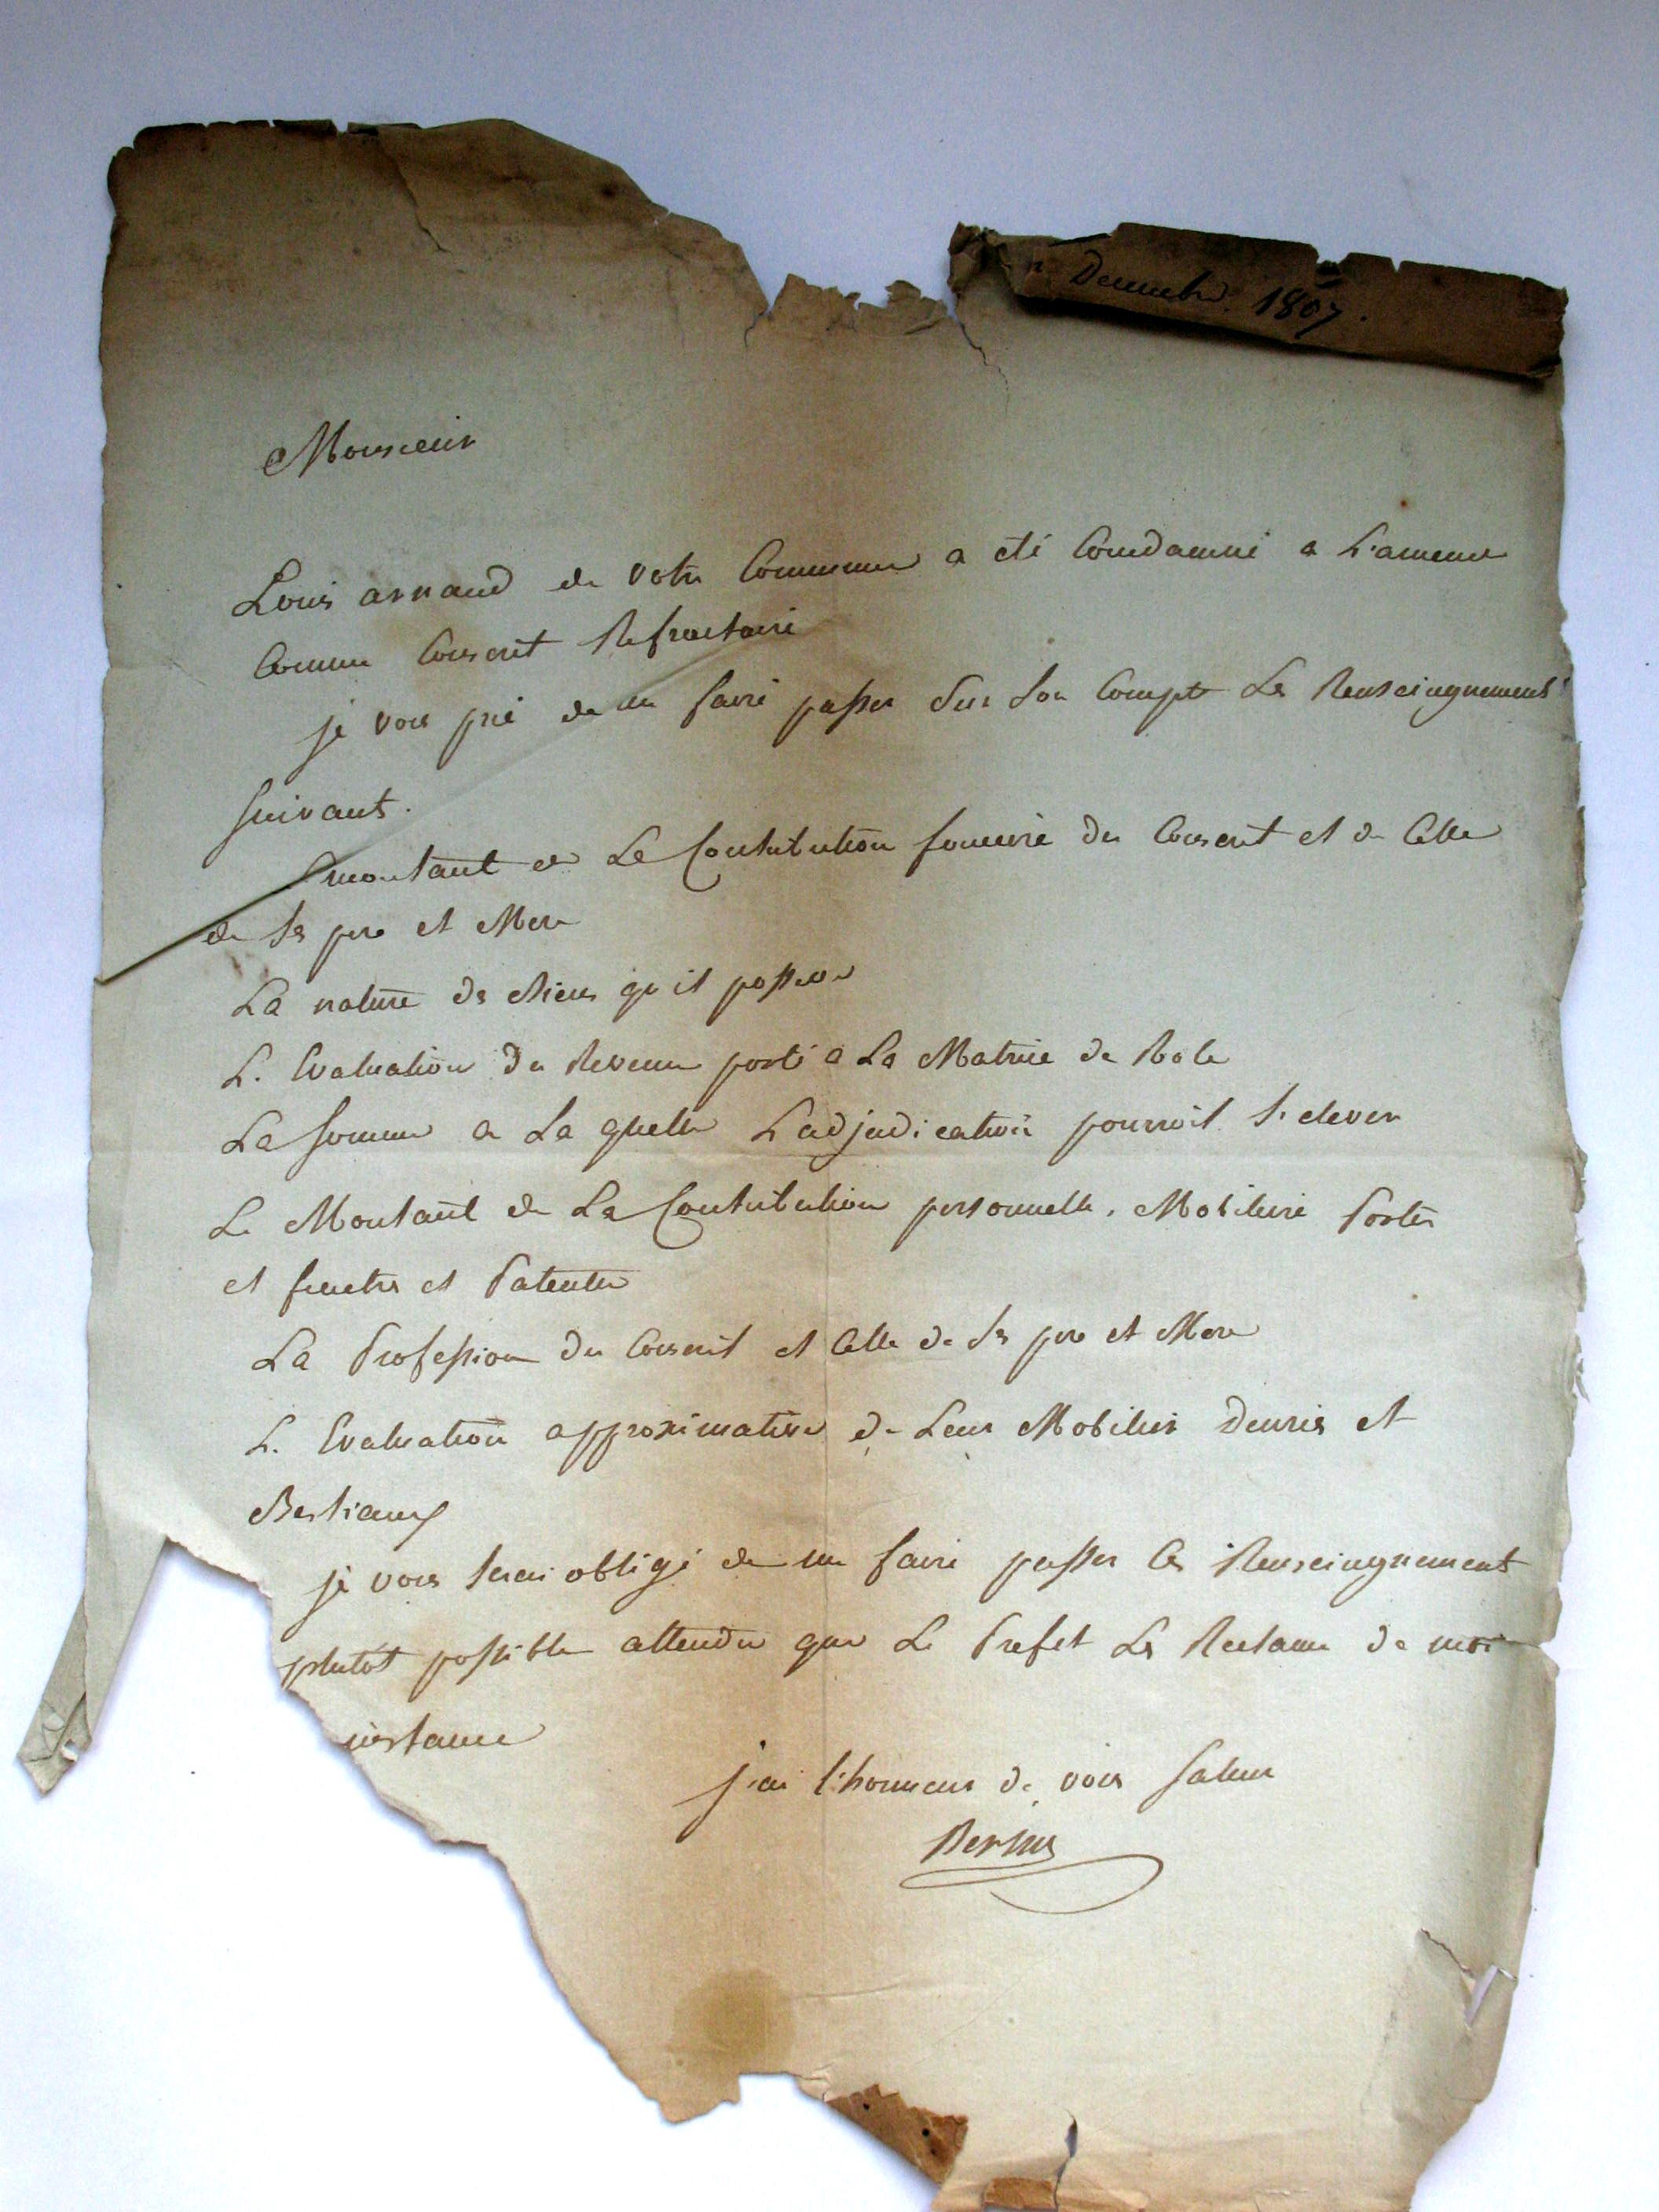 Decembre 1807.
Monsieur
Louis arnaud de votre Commune a eté Condamné a L'amende
Comme Conscrit Refractaire
je vous prie de me faire passer Sur Son Compte Les Renseingnements
Suivant.
montant de La Contribution fonciere du Conscrit et de Celle
de Ses pere et Mere
La nature des Biens qu'il possede
L'Evaluation du Revenu porté a La Matrice de Role
La Somme a La quelle L'adjudication pourroit S'elever
Le Montant de La Contribution personnelle, Mobiliere Portes
et fenetres et Patentes
La Profession du Conscrit et Celle de Ses pere et Mere
L'Evaluation approximative de Leur Mobilier Denrés et
Bestiaux
je vous Serai obligé de me faire passer Ces Renseingnement
plutot possible attendu que Le Prefet Les Reclame de moi
instance
j'ai l'honneur de vous Saluer